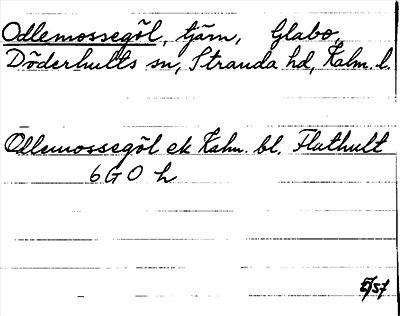 Odlemossegöl, tjärn, Glabo,
Döderhults sn, Stranda hd, Kalm. l.
Odlemossegöl ek Kalm. bl. Flathult
6 G O h
5/57